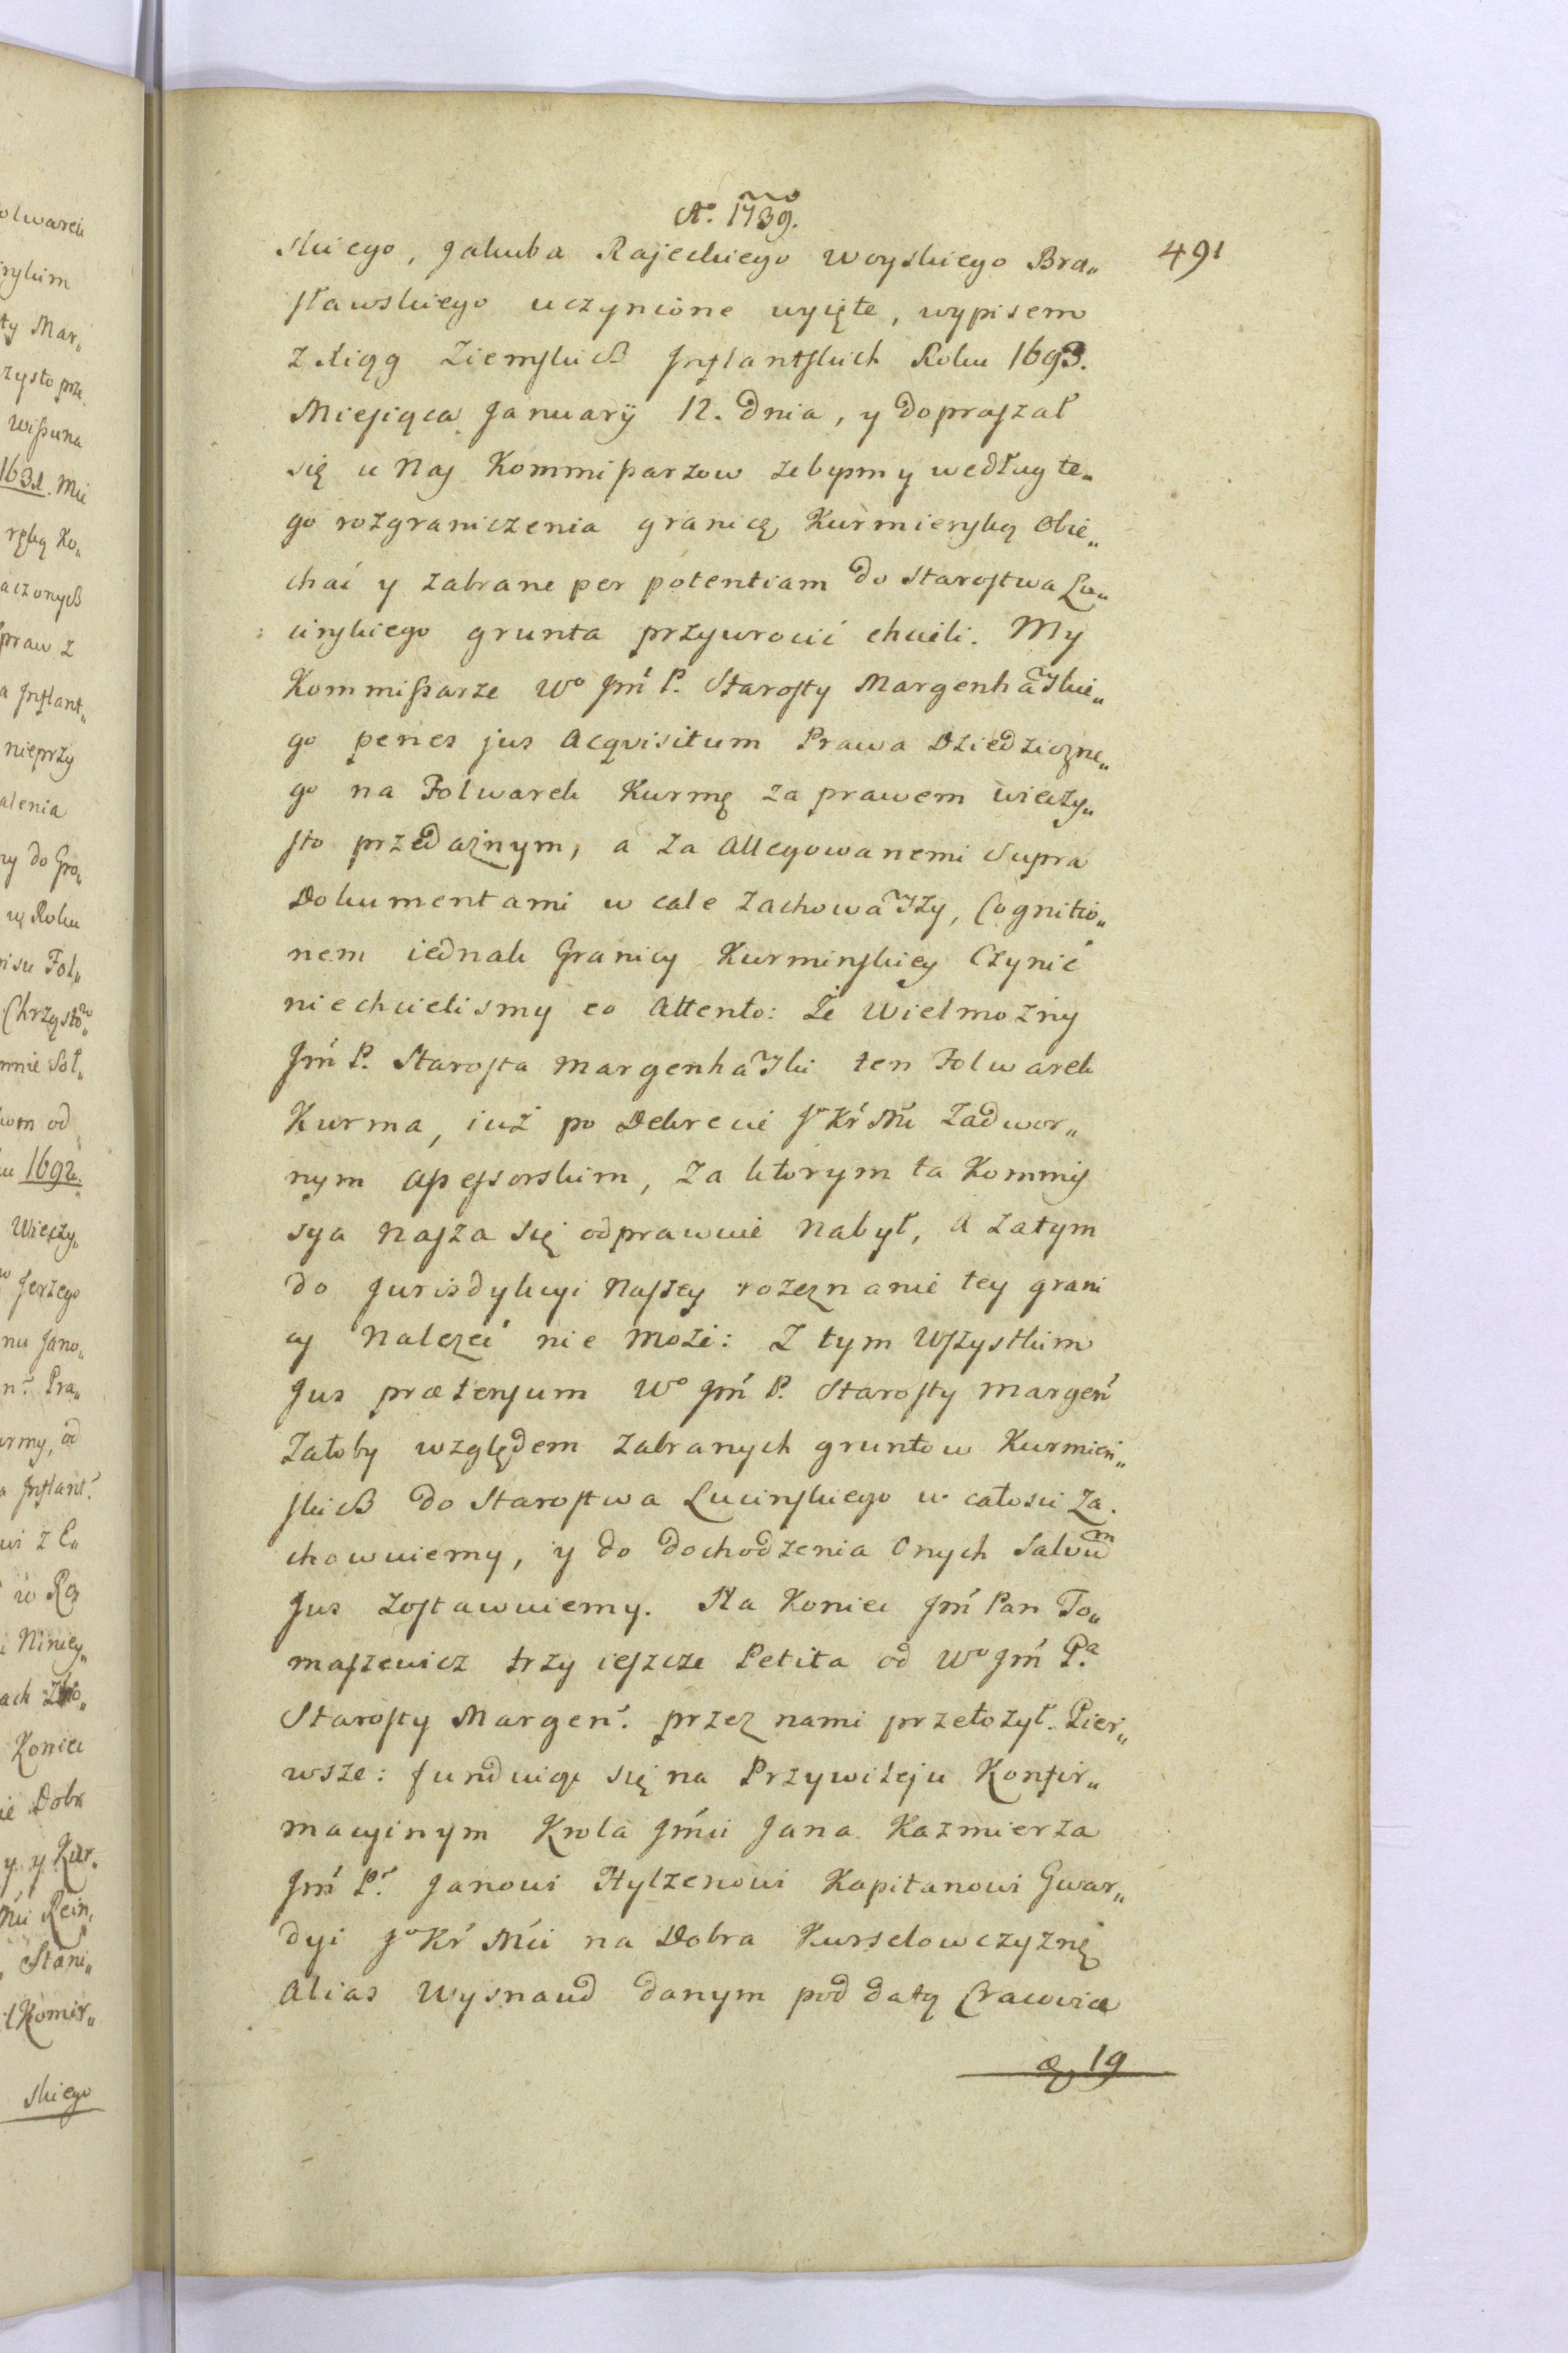 Aº. 1739.
491
skiego, Jakuba Rajeckiego Woyskiego Bra„
sławskiego uczynione wyięte, wypisem
z Xiąg Ziemskich Inflantskich Roku 1693.
Miesiąca January 12. dnia, y dopraszał
się u Nas Kommissarzow żebysmy według te„
go rozgraniczenia granicę Kurmienską obie„
chać y zabrane per potentiam do Starostwa Lu„
cinskiego grunta przywrocić chcieli. My
Kommissarze Wº Jmć P. Starosty Margenhaskie„
go penes jus Acqvisitum Prawa Dziedziczne„
go na Folwarek Kurmę za prawem wieczy„
sto przedażnym, a za allegowanemi Supra
Dokumentami w cale zachowawszy, Cognitio„
nem iednak Granicy Kurminskiey Czynić
niechcielismy eo Attento: Że Wielmożny
Jmć P. Starosta Margenhaski ten Folwarek
Kurma, iuż po Dekrecie Jº Kr Mći Zadwor„
nym Assessorskim, za ktorym ta Kommis
sya Nasza się odprawuie nabył, A zatym
do Jurisdykcyi Naszey rozeznanie tey grani
cy Należeć nie może: Z tym Wszystkim
Jus prætensum Wº Jmć P. Starosty Margeń
Załoby względem zabranych gruntow Kurmień„
skich do Starostwa Lucinskiego w całosci za.
chowuiemy, y do dochodzenia Onych Salvum
Jus zostawuiemy. Na Koniec Jmć Pan To„
maszewicz trzy ieszcze Petita od Wº Jmć Pª
Starosty Margeń. przez nami przełożył. Pier„
wsze: funduiąc się na Przywileju Konfir„
macyinym Krola Jmći Jana Kazmierza
Jmć P. Janowi Hylzenowi Kapitanowi Gwar„
dyi Jº Kr Mći na Dobra Kurselowczyznę
Alias Wysnaud danym pod datą Cracoviæ